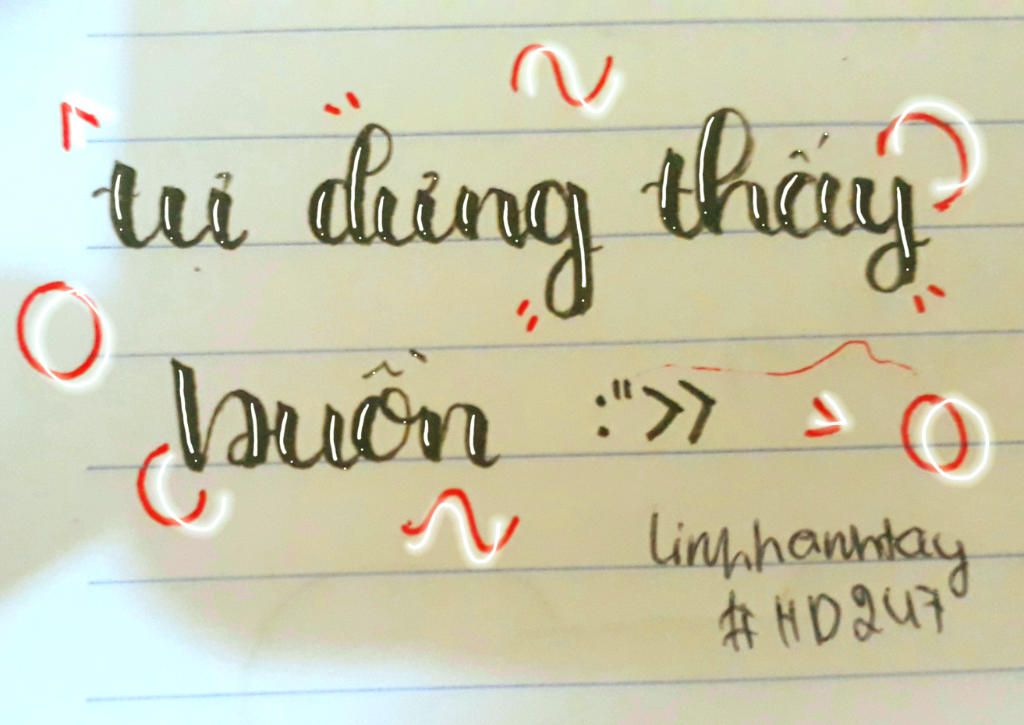 tự dưng thấy
buồn :">>
linhhanhtay
#HD247